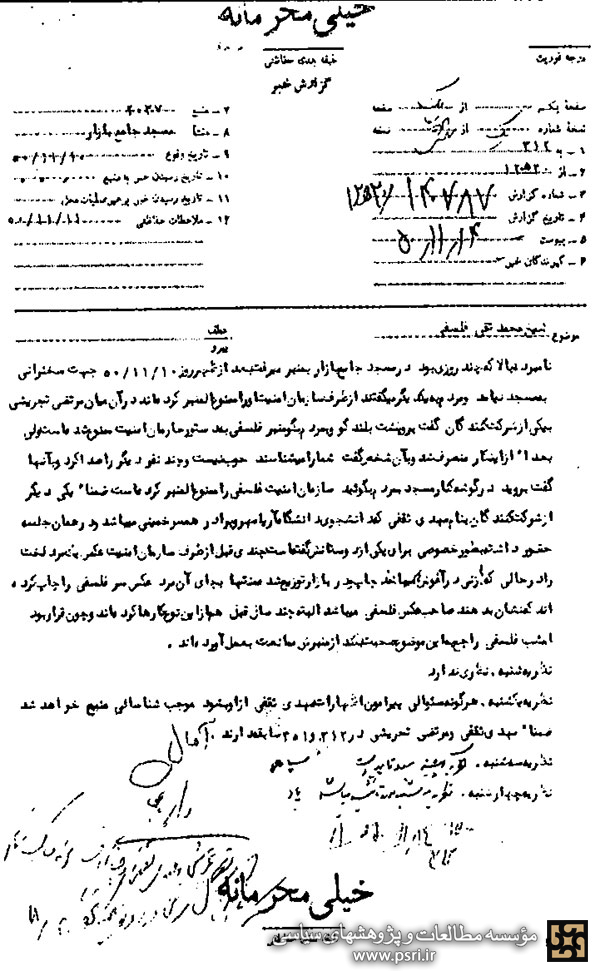 خیلی محرمانه
درجه فوریت
طبقه بندی حفاظتی
گزارش خبر
صفحه یکم از صفحه
نسخه شماره از نسخه
۱ـ به ۳۱۲
۲ـ از ۱۲۵۲۰
۳ـ شماره گزارش ۱۴۷۸۷
۴ـ تاریخ گزارش ۵۰/۱۱/۱۴
۵ـ پیوست
۶ـ گیرندگان خبر
۷ـ منبع ۲۰۲۷
۸ـ منشأ مسجد جامع بازار
۹ـ تاریخ وقوع ۵۰/۱۱/۱۰
۱۰ـ تاریخ رسیدن خبر به منبع
۱۱ـ تاریخ رسیدن خبر برهبر عملیات محل
۱۲ـ ملاحظات حفاظتی ۵۰/۱۱/۱۱
موضوع شیخ محمد تقی فلسفی
عطف
پیرو
نامبرده بالا که چند روزی بود در مسجد جامع بازار بمنبر میرفت بعد از ظهر روز ۵۰/۱۱/۱۰ جهت سخنرانی
بمسجد نیامد و مردم بیکدیگر میگفتند از طرف سازمان امنیت او را ممنوع المنبر کرده‌اند در آن میان مرتضی تجریشی
بیکی از شرکت کنندگان گفت برو پشت بلندگو و بمردم بگو منبر فلسفی بعد ستور سازمان امنیت ممنوع شده است ولی
بعداً از اینکار منصرف شد و بآن شخص گفت شما را میشناسند خوب نیست و چند نفر دیگر را صدا کرد و بآنها
گفت بروید در گوشه کنار مسجد بمردم بگوئید سازمان امنیت فلسفی را ممنوع المنبر کرده است ضمناً یکی دیگر
از شرکت کنندگان بنام مهدی ثقفی که دانشجوی دانشگاه آریامهر و برادر همسر خمینی میباشد و در همان جلسه
حضور داشته بطور خصوصی برای یکی از دوستانش گفته است چندی قبل از طرف سازمان امنیت عکس یکمرد لخت
را در حالی که زنی در آغوش او میباشد چاپ در بازار توزیع شد منتها بجای آن مرد عکس سر فلسفی را چاپ کرده
اند که نشان بدهند صاحب عکس فلسفی میباشد البته چند سال قبل هم از این نوع کارها کرده‌اند و چون قرار بود
امشب فلسفی راجع باین موضوع صحبت بکند از منبرش ممانعت بعمل آورده‌اند .
نظریه شنبه . نظری ندارد
نظریه یکشنبه . هرگونه سئوالی پیرامون اظهارات مهدی ثقفی از او بشود موجب شناسائی منبع خواهد شد
ضمناً مهدی ثقفی و مرتضی تجریشی در ۳۱۲ و ۲۰۱۹ سابقه دارند .
نظریه سه‌شنبه .
نظریه چهارشنبه .
خیلی محرمانه
مؤسسه مطالعات و پژوهشهای سیاسی
www.psri.ir